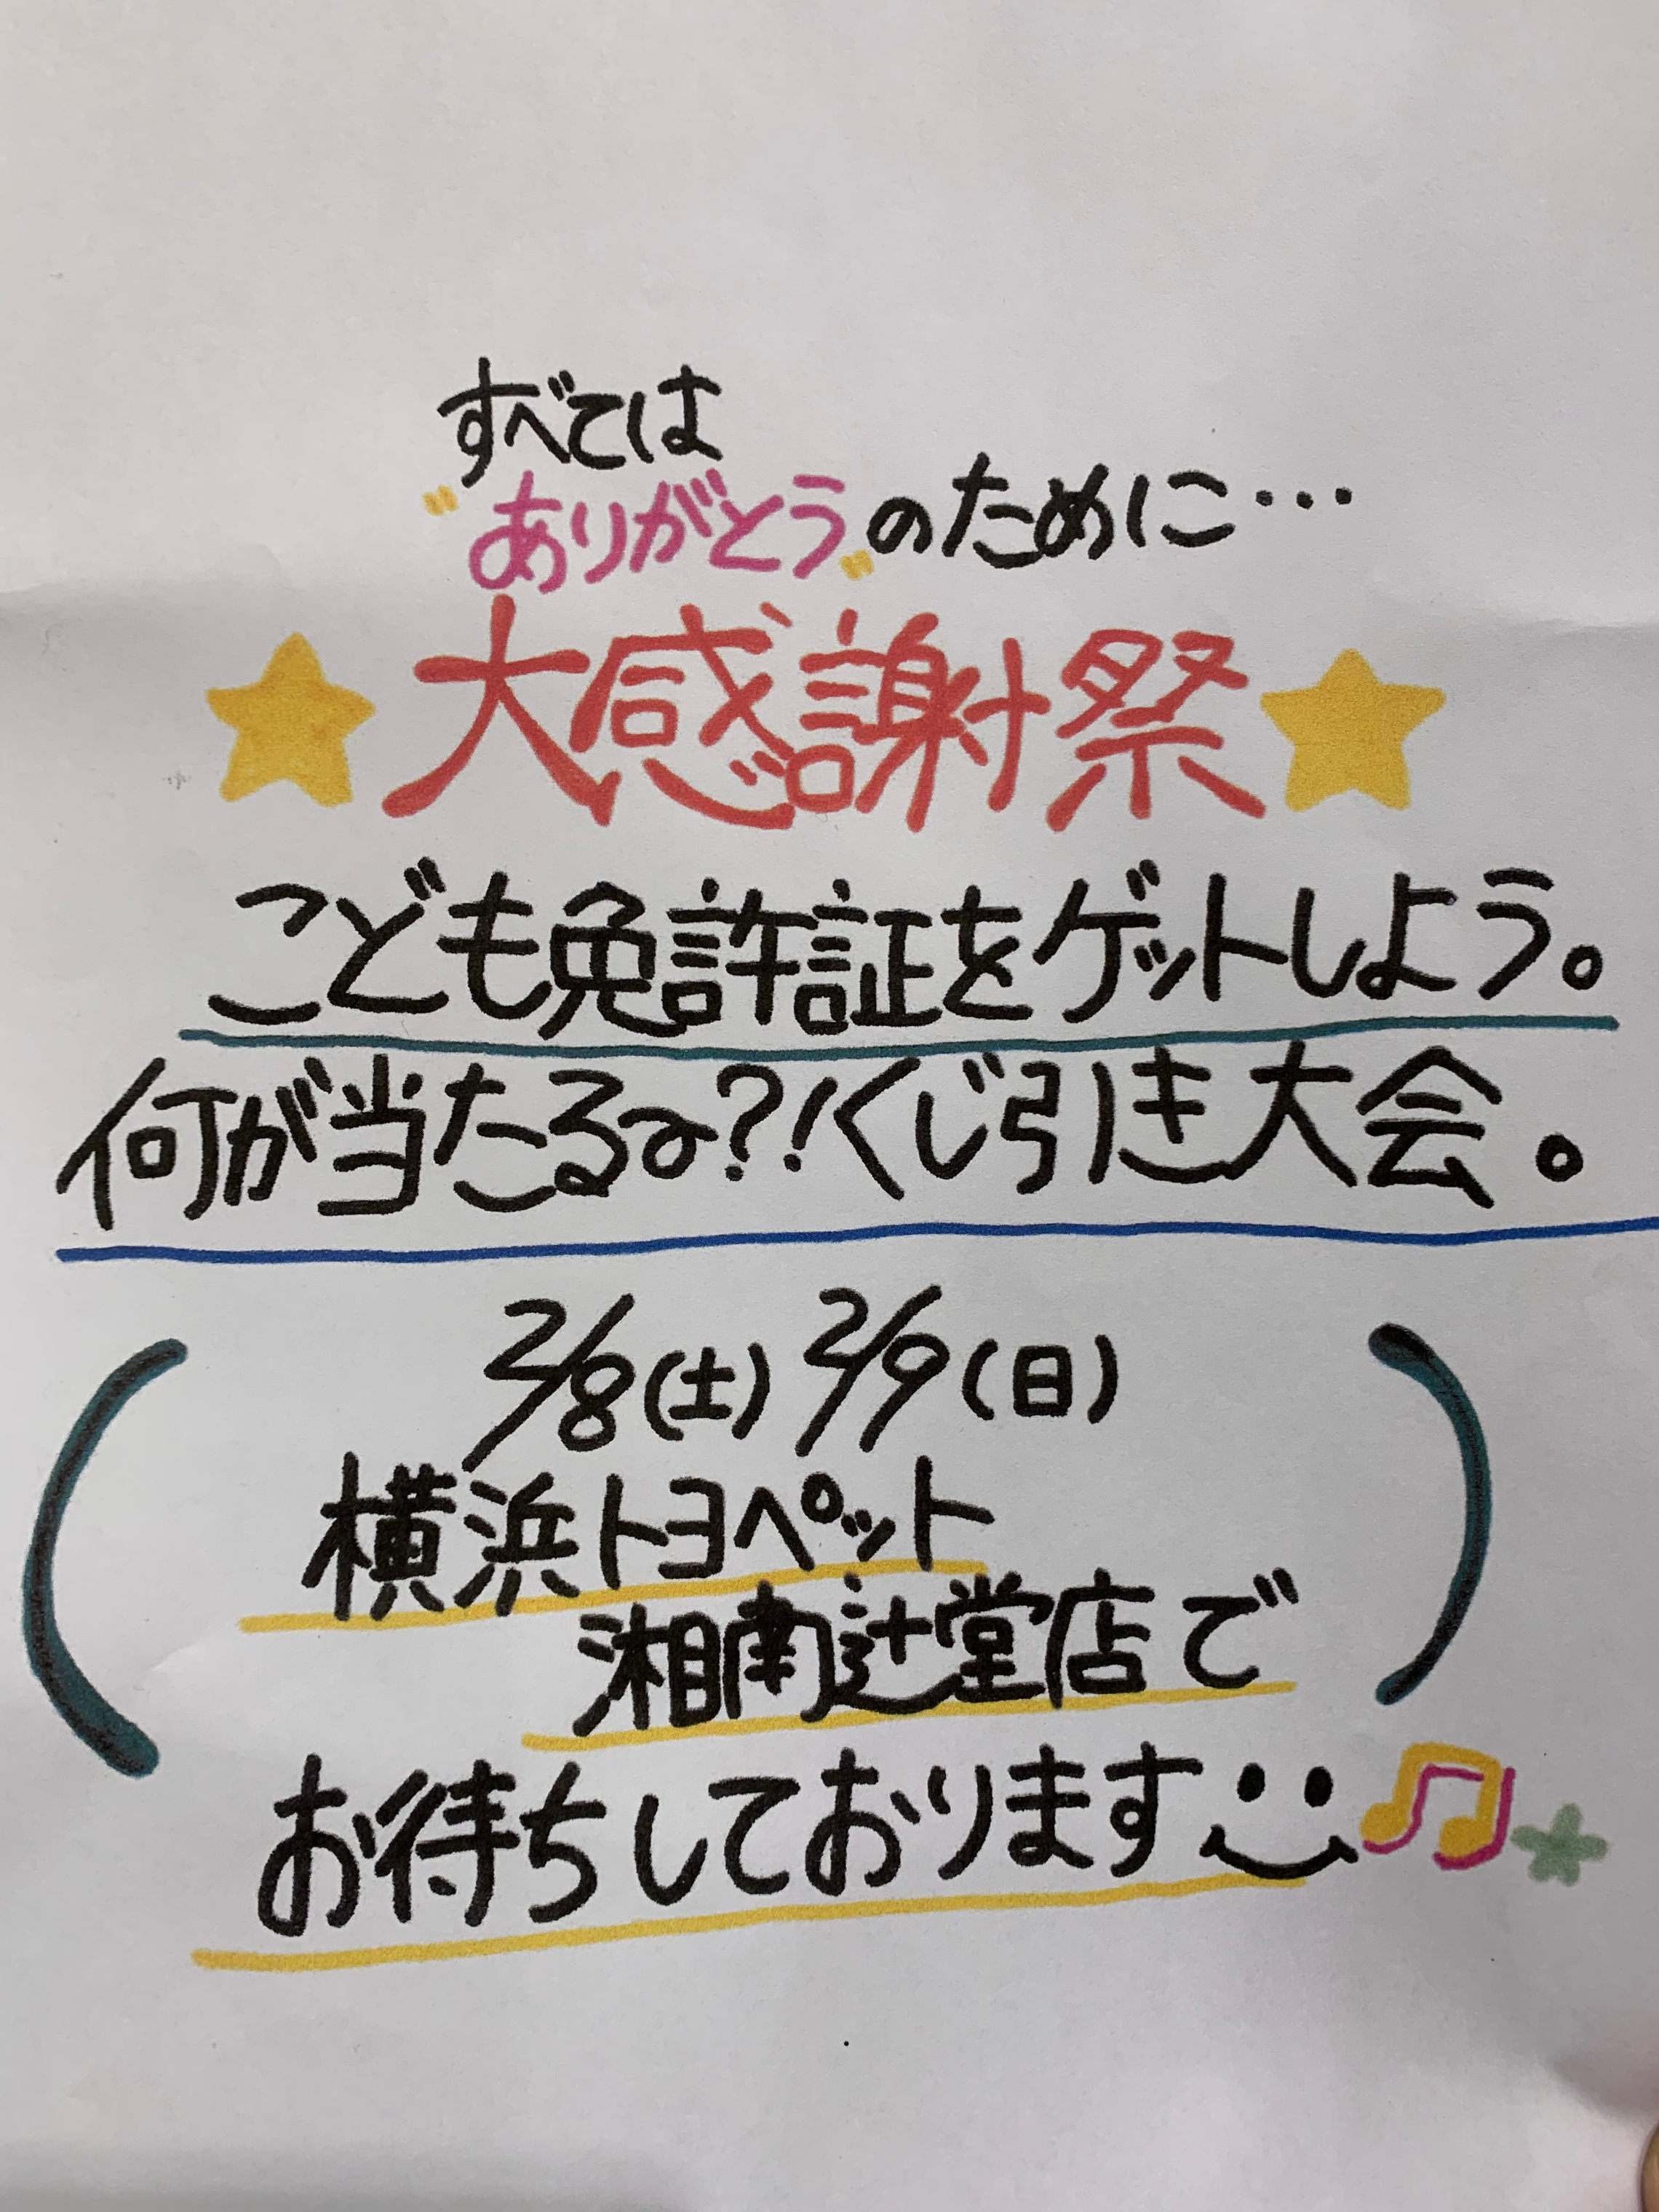 すべては
"ありがとう"のために…
★大感謝祭★
こども免許証をゲットしよう。
何が当たるの?!くじ引き大会。
2/8(土) 2/9(日)
横浜トヨペット
湘南辻堂店で
お待ちしております